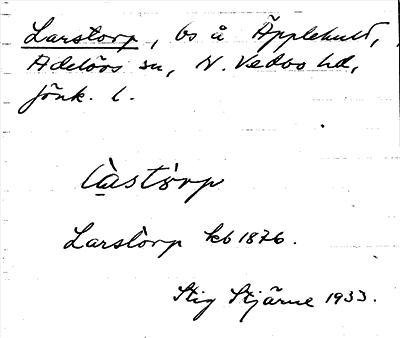 Larstorp, bs å Äpplehult,
Adelövs sn, N. Vedbo hd,
Jönk. l.
làstòrp
Larstorp kb 1876.
Stig Stjärne 1933.